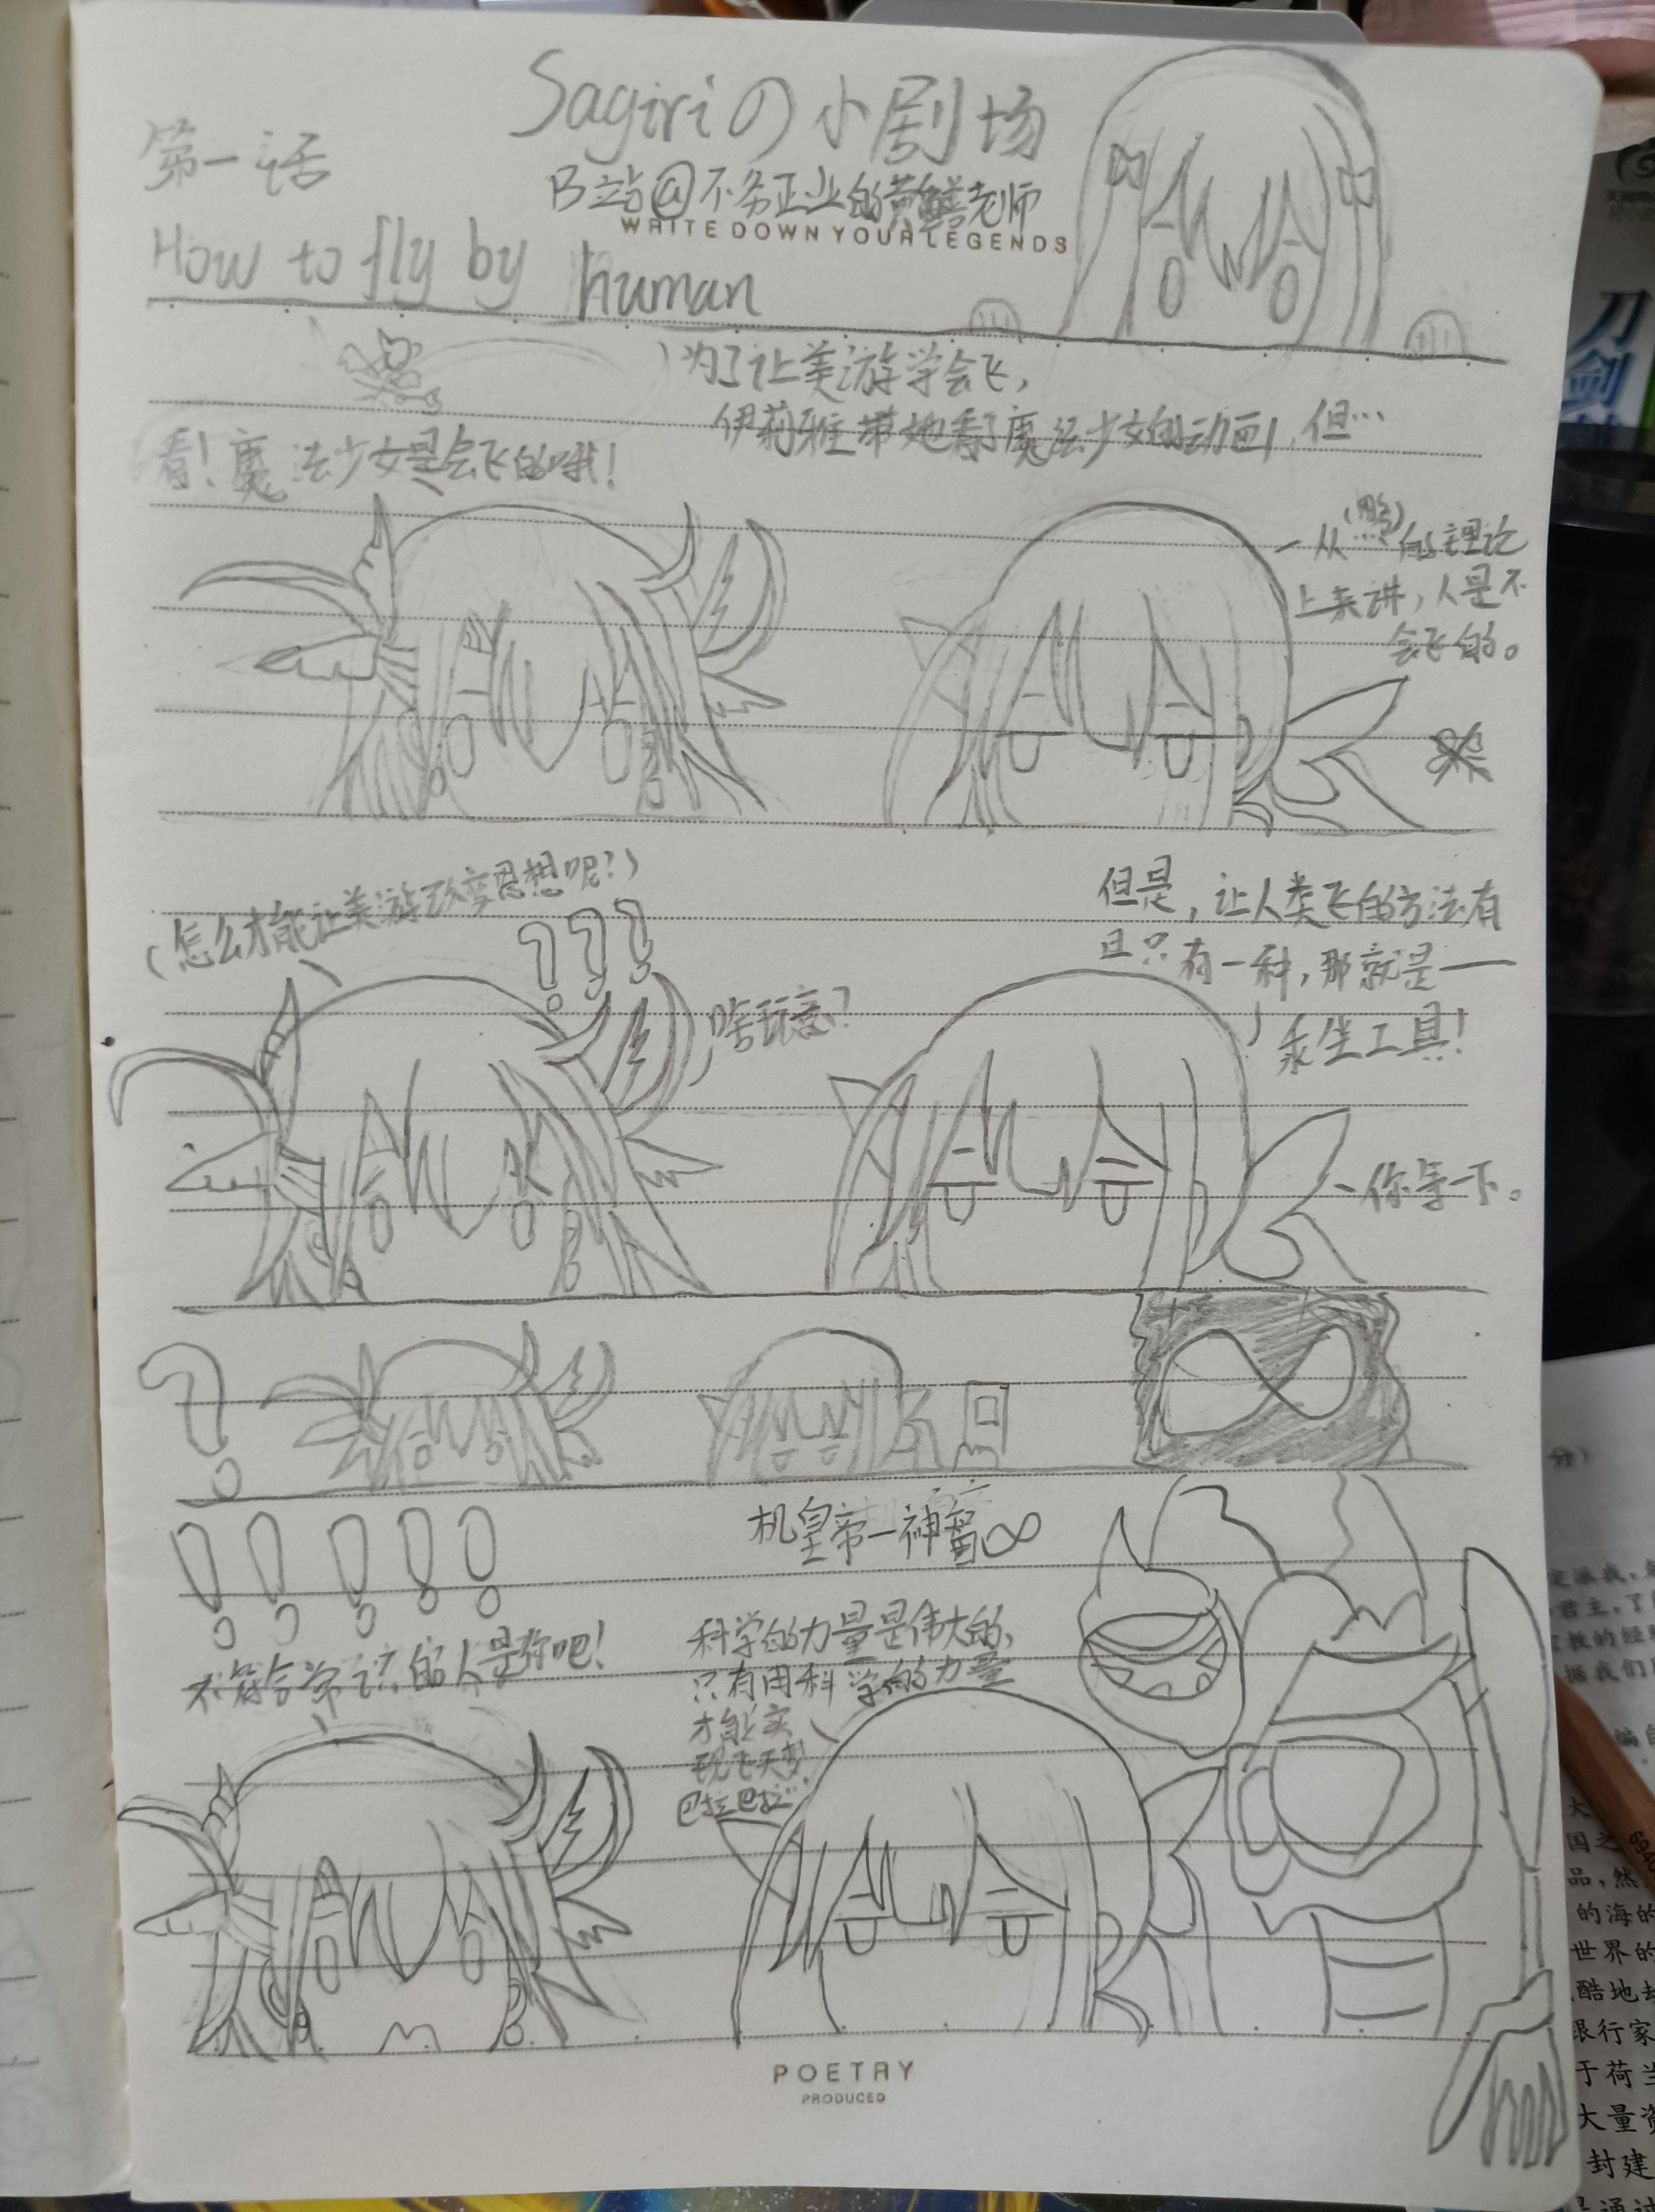 Sagiriの小剧场
第一话
B站@不务正业的黄鳝老师
WRITE DOWN YOUR LEGENDS
How to fly by human
为了让美游学会飞，
伊莉雅带她看了魔法少女的动画，但…
看！魔法少女是会飞的哦！
从 的理论
上来讲，人是不
会飞的。
（怎么才能让美游改变思想呢？）
???
啥玩意？
但是，让人类飞的方法有
且只有一种，那就是——
乘坐工具！
你等一下。
?
∞
!!!!!
机皇帝一神智∞
不符合常识的人是你吧！
科学的力量是伟大的，
只有用科学的力量
才能实
现飞天梦，
巴拉巴拉…
POETRY
PRODUCED
刀剑
分）
694
国之
品，然
的海的
世界的
酷地
银行家
于荷兰
大量资
封建